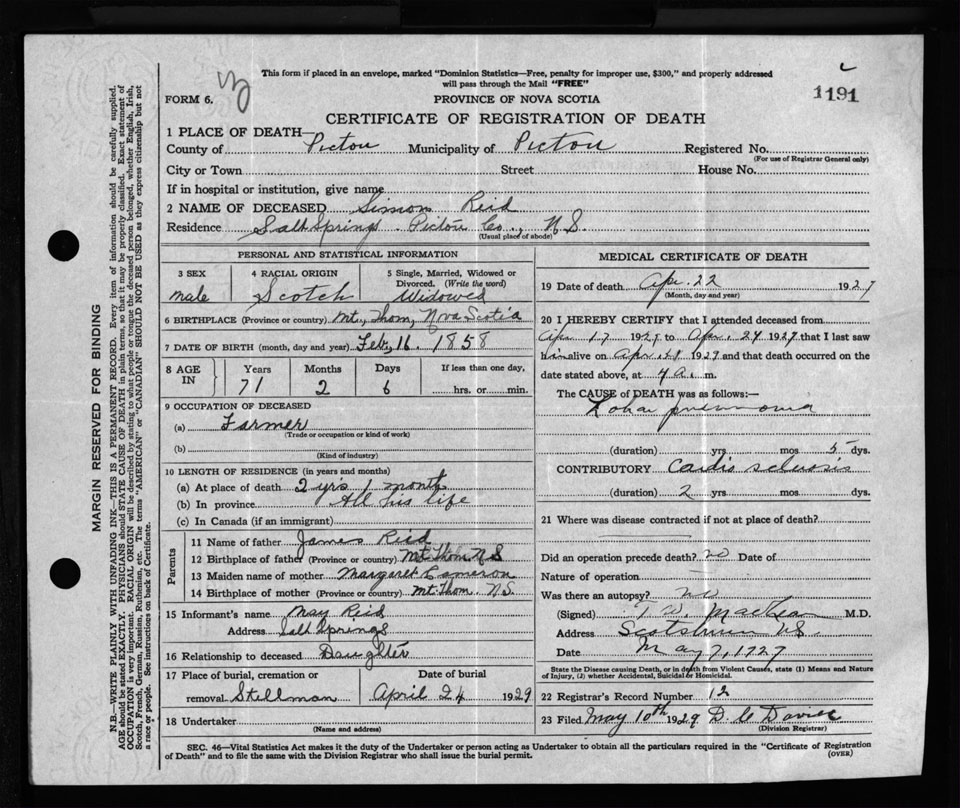 This form if placed in an envelope, marked "Dominion Statistics—Free, penalty for improper use, $300," and properly addressed
will pass through the Mail "FREE"
FORM 6. PROVINCE OF NOVA SCOTIA 1191
CERTIFICATE OF REGISTRATION OF DEATH
1 PLACE OF DEATH—
County of Pictou Municipality of Pictou Registered No.
(For use of Registrar General only)
City or Town Street House No.
If in hospital or institution, give name
2 NAME OF DECEASED Simon Reid
Residence Salt Springs Pictou Co., N.S.
(Usual place of abode)
PERSONAL AND STATISTICAL INFORMATION
3 SEX 4 RACIAL ORIGIN 5 Single, Married, Widowed or
Divorced. (Write the word)
male Scotch Widowed
6 BIRTHPLACE (Province or country) Mt., Thom, Nova Scotia
7 DATE OF BIRTH (month, day and year) Feb, 16. 1858
8 AGE IN Years Months Days If less than one day,
71 2 6 hrs. or min.
9 OCCUPATION OF DECEASED
(a) Farmer
(Trade or occupation or kind of work)
(b)
(Kind of industry)
10 LENGTH OF RESIDENCE (in years and months)
(a) At place of death 2 yrs 1 month
(b) In province All his life
(c) In Canada (if an immigrant)
Parents
11 Name of father James Reid
12 Birthplace of father (Province or country) Mt Thom N S
13 Maiden name of mother Margaret Cameron
14 Birthplace of mother (Province or country) Mt. Thom. N.S.
15 Informant's name May Reid
Address Salt Springs
16 Relationship to deceased Daughter
17 Place of burial, cremation or Date of burial
removal Stillman April 24 1929
18 Undertaker
(Name and address)
MEDICAL CERTIFICATE OF DEATH
19 Date of death Apr. 22 1927
(Month, day and year)
20 I HEREBY CERTIFY that I attended deceased from
Apr 17 1927 to Apr. 24 1927 that I last saw
him alive on Apr. 1929 and that death occurred on the
date stated above, at 4 a. m.
The CAUSE of DEATH was as follows:
Lobar pneumonia
(duration) yrs mos 5 dys.
CONTRIBUTORY Cardio sclerosis
(duration) 2 yrs mos dys.
21 Where was disease contracted if not at place of death?
Did an operation precede death? no Date of
Nature of operation
Was there an autopsy? no
(Signed) MacLean M.D.
Address N.S.
Date May 7, 1927
State the Disease causing Death, or in death from Violent Causes, state (1) Means and Nature
of Injury, (2) whether Accidental, Suicidal or Homicidal.
22 Registrar's Record Number 12
23 Filed May 10th 1929 D. C Davies
(Division Registrar)
SEC. 46—Vital Statistics Act makes it the duty of the Undertaker or person acting as Undertaker to obtain all the particulars required in the "Certificate of Registration
of Death" and to file the same with the Division Registrar who shall issue the burial permit. (OVER)
MARGIN RESERVED FOR BINDING
N.B.—WRITE PLAINLY WITH UNFADING INK—THIS IS A PERMANENT RECORD. Every item of information should be carefully supplied.
AGE should be stated EXACTLY. PHYSICIANS should STATE CAUSE OF DEATH in plain terms, so that it may be properly classified. Exact statement of
OCCUPATION is very important. RACIAL ORIGIN will be described by stating to what people or tongue the deceased person belonged, whether English, Irish,
Scotch, French, German, Russian, Ruthenian, etc. The terms "AMERICAN" or "CANADIAN" SHOULD NOT BE USED as they express citizenship but not
a race or people. See instructions on back of Certificate.